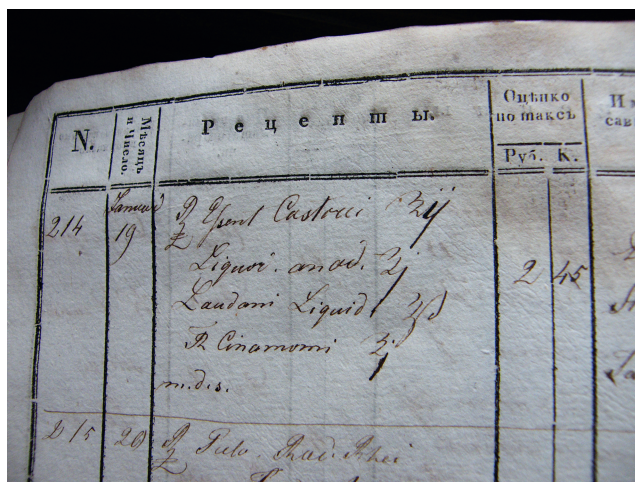 N.
Мѣсяцъ и Число.
Рецепты.
Оцѣнко по таксѣ
Руб. К.
214 Januar 19 ℞ Essent Castorei ʒij
Liquor. anod. ʒj
2 45
Laudani Liquid ʒß
Cinamomi ʒj
m.d.s.
215 20 ℞ Pulv. Rad. Rhei